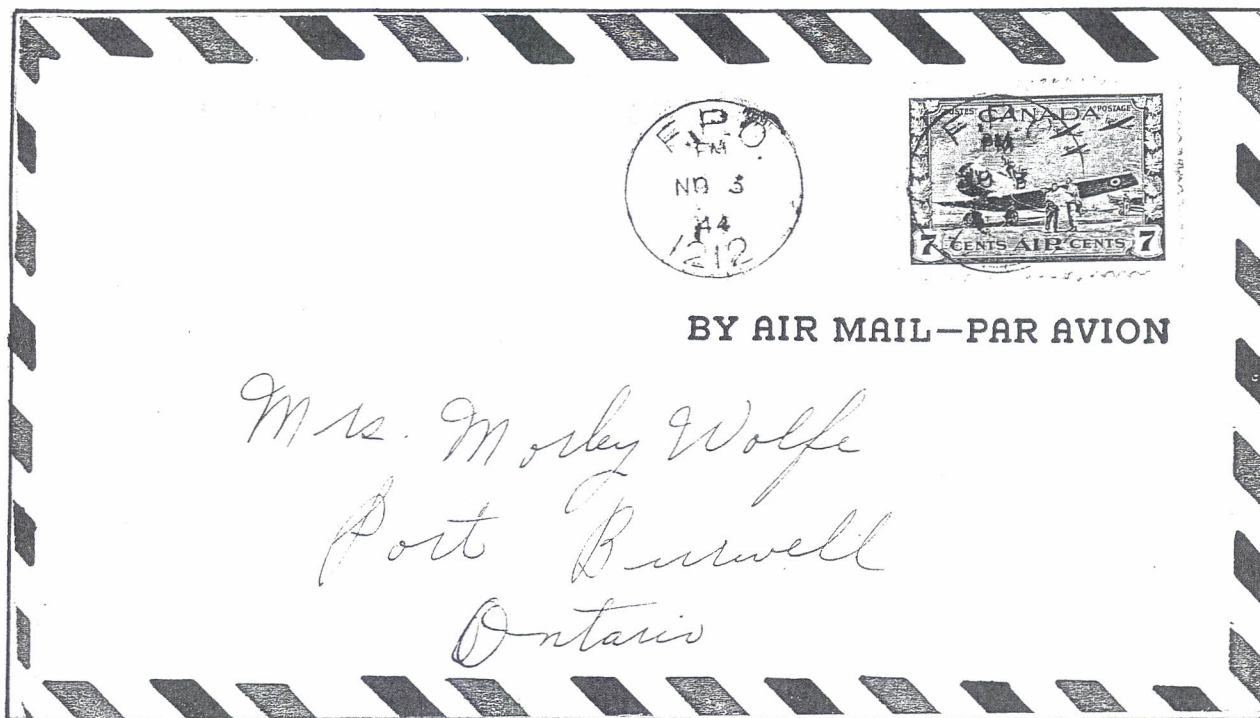 F.P.O.
PM
NO 3
44
1212
POSTES CANADA POSTAGE
7 CENTS AIR CENTS 7
BY AIR MAIL—PAR AVION
Mrs. Morley Wolfe
Port Burwell
Ontario